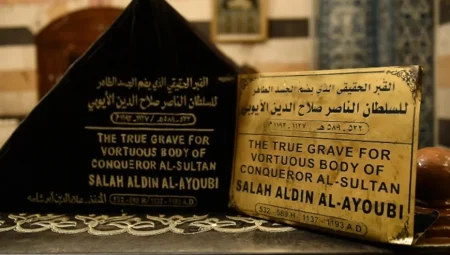 القبر الحقيقي الذي يضم الجسد الطاهر
للسلطان الناصر صلاح الدين الأيوبي
THE TRUE GRAVE FOR
VORTUOUS BODY OF
CONQUEROR AL-SULTAN
SALAH ALDIN AL-AYOUBI
القبر الحقيقي الذي يضم الجسد الطاهر
للسلطان الناصر صلاح الدين الأيوبي
٥٣٢ـ٥٨٩ هـ
THE TRUE GRAVE FOR
VORTUOUS BODY OF
CONQUEROR AL-SULTAN
SALAH ALDIN AL-AYOUBI
532 - 589 H 1137 - 1193 A.D